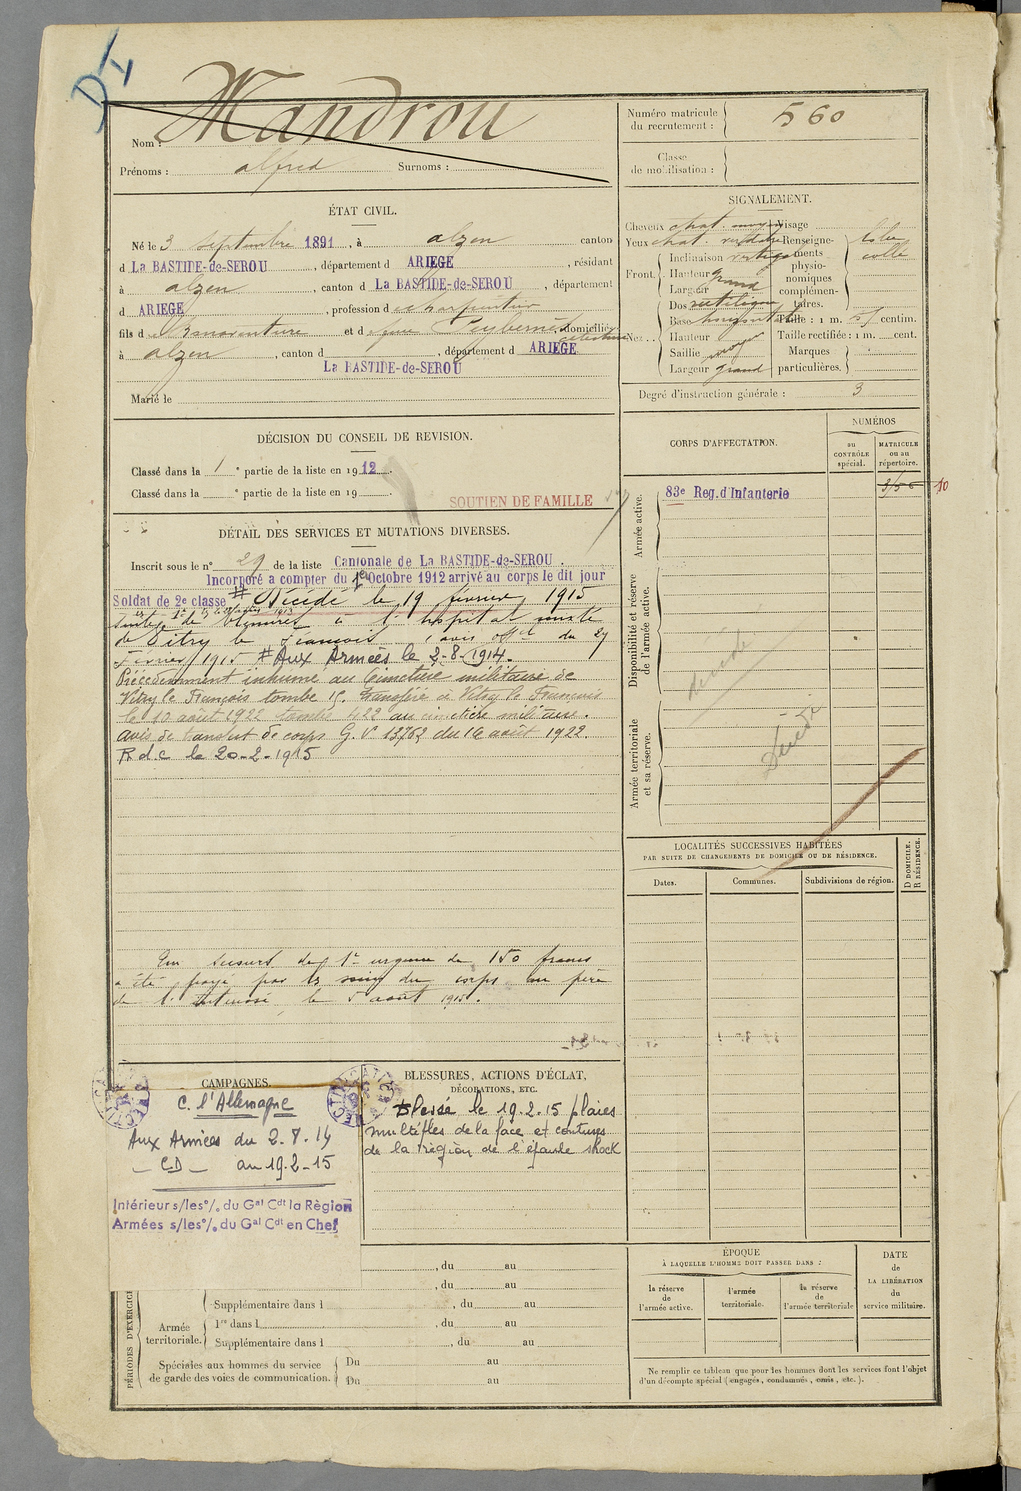 DI
Nom : Mandrou
Prénoms : alfred Surnoms :
ÉTAT CIVIL.
Né le 3 septembre 1891, à alzen canton
d La BASTIDE-de-SEROU, département d ARIEGE, résidant
à alzen, canton d La BASTIDE-de-SEROU, département
d ARIEGE, profession d charpentier
fils d Bonaventure et d domicilié
à alzen, canton d , département d ARIEGE
La BASTIDE-de-SEROU
Marié le
DÉCISION DU CONSEIL DE REVISION.
Classé dans la 1e partie de la liste en 1912.
Classé dans la e partie de la liste en 19 .
SOUTIEN DE FAMILLE
DÉTAIL DES SERVICES ET MUTATIONS DIVERSES.
Inscrit sous le n° 29 de la liste Cantonale de La BASTIDE-de-SEROU.
Incorporé a compter du Octobre 1912 arrivé au corps le dit jour
Soldat de 2e classe # Décédé le 19 février 1915
suites de blessures à l'hopital mixte
de Vitry le François avis offel du 27
Février 1915 # Aux Armées le 2-8-1914.
Précédemment inhumé au Cimetière militaire de
Vitry le François tombe 15. transféré à Vitry le François
le 10 août 1922 tombe 422 au cimetière militaire.
avis de transfert de corps G.V. 13762 du 16 août 1922.
R d.c. le 20-2-1915
Un secours de 1re urgence de 150 francs
a été payé par les soins du corps au père
de l'intéressé, le 5 août 1915.
CAMPAGNES.
C. l'Allemagne
Aux Armées du 2.8.14
- CD - au 19.2-15
Intérieur s/les °/. du Gal Cdt la Région
Armées s/les °/. du Gal Cdt en Chef
BLESSURES, ACTIONS D'ÉCLAT,
DÉCORATIONS, ETC.
Blessé le 19.2.15 plaies
multiples de la face et contuses
de la région de l'épaule shock
, du au
, du au
PÉRIODES D'EXERCICE
Supplémentaire dans l , du au
Armée territoriale.
1re dans l , du au
Supplémentaire dans l , du au
Spéciales aux hommes du service
de garde des voies de communication.
Du au
Du au
Numéro matricule
du recrutement : 560
Classe
de mobilisation :
SIGNALEMENT.
Cheveux chat. moyen Visage
Yeux chat. verdâtre Renseigne-
ments
physio-
nomiques
complémen-
taires.
collé
Front.
Inclinaison verticale
Hauteur grand
Largeur
Nez.
Dos rectiligne
Base horizontale
Hauteur
Saillie moyen
Largeur grand
Taille : 1 m. centim.
Taille rectifiée : 1 m. cent.
Marques
particulières.
Degré d'instruction générale : 3
CORPS D'AFFECTATION.
NUMÉROS
au
CONTRÔLE
spécial.
MATRICULE
ou au
répertoire.
Armée active.
83e Reg. d'Infanterie
10
Disponibilité et réserve
de l'armée active.
décédé
Armée territoriale
et sa réserve.
Décédé
LOCALITÉS SUCCESSIVES HABITÉES
PAR SUITE DE CHANGEMENTS DE DOMICILE OU DE RÉSIDENCE.
Dates.
Communes.
Subdivisions de région.
D DOMICILE.
R RÉSIDENCE.
ÉPOQUE
À LAQUELLE L'HOMME DOIT PASSER DANS :
la réserve
de
l'armée active.
l'armée
territoriale.
la réserve
de
l'armée territoriale
DATE
de
LA LIBÉRATION
du
service militaire.
Ne remplir ce tableau que pour les hommes dont les services font l'objet
d'un décompte spécial (engagés, condamnés, omis, etc.).